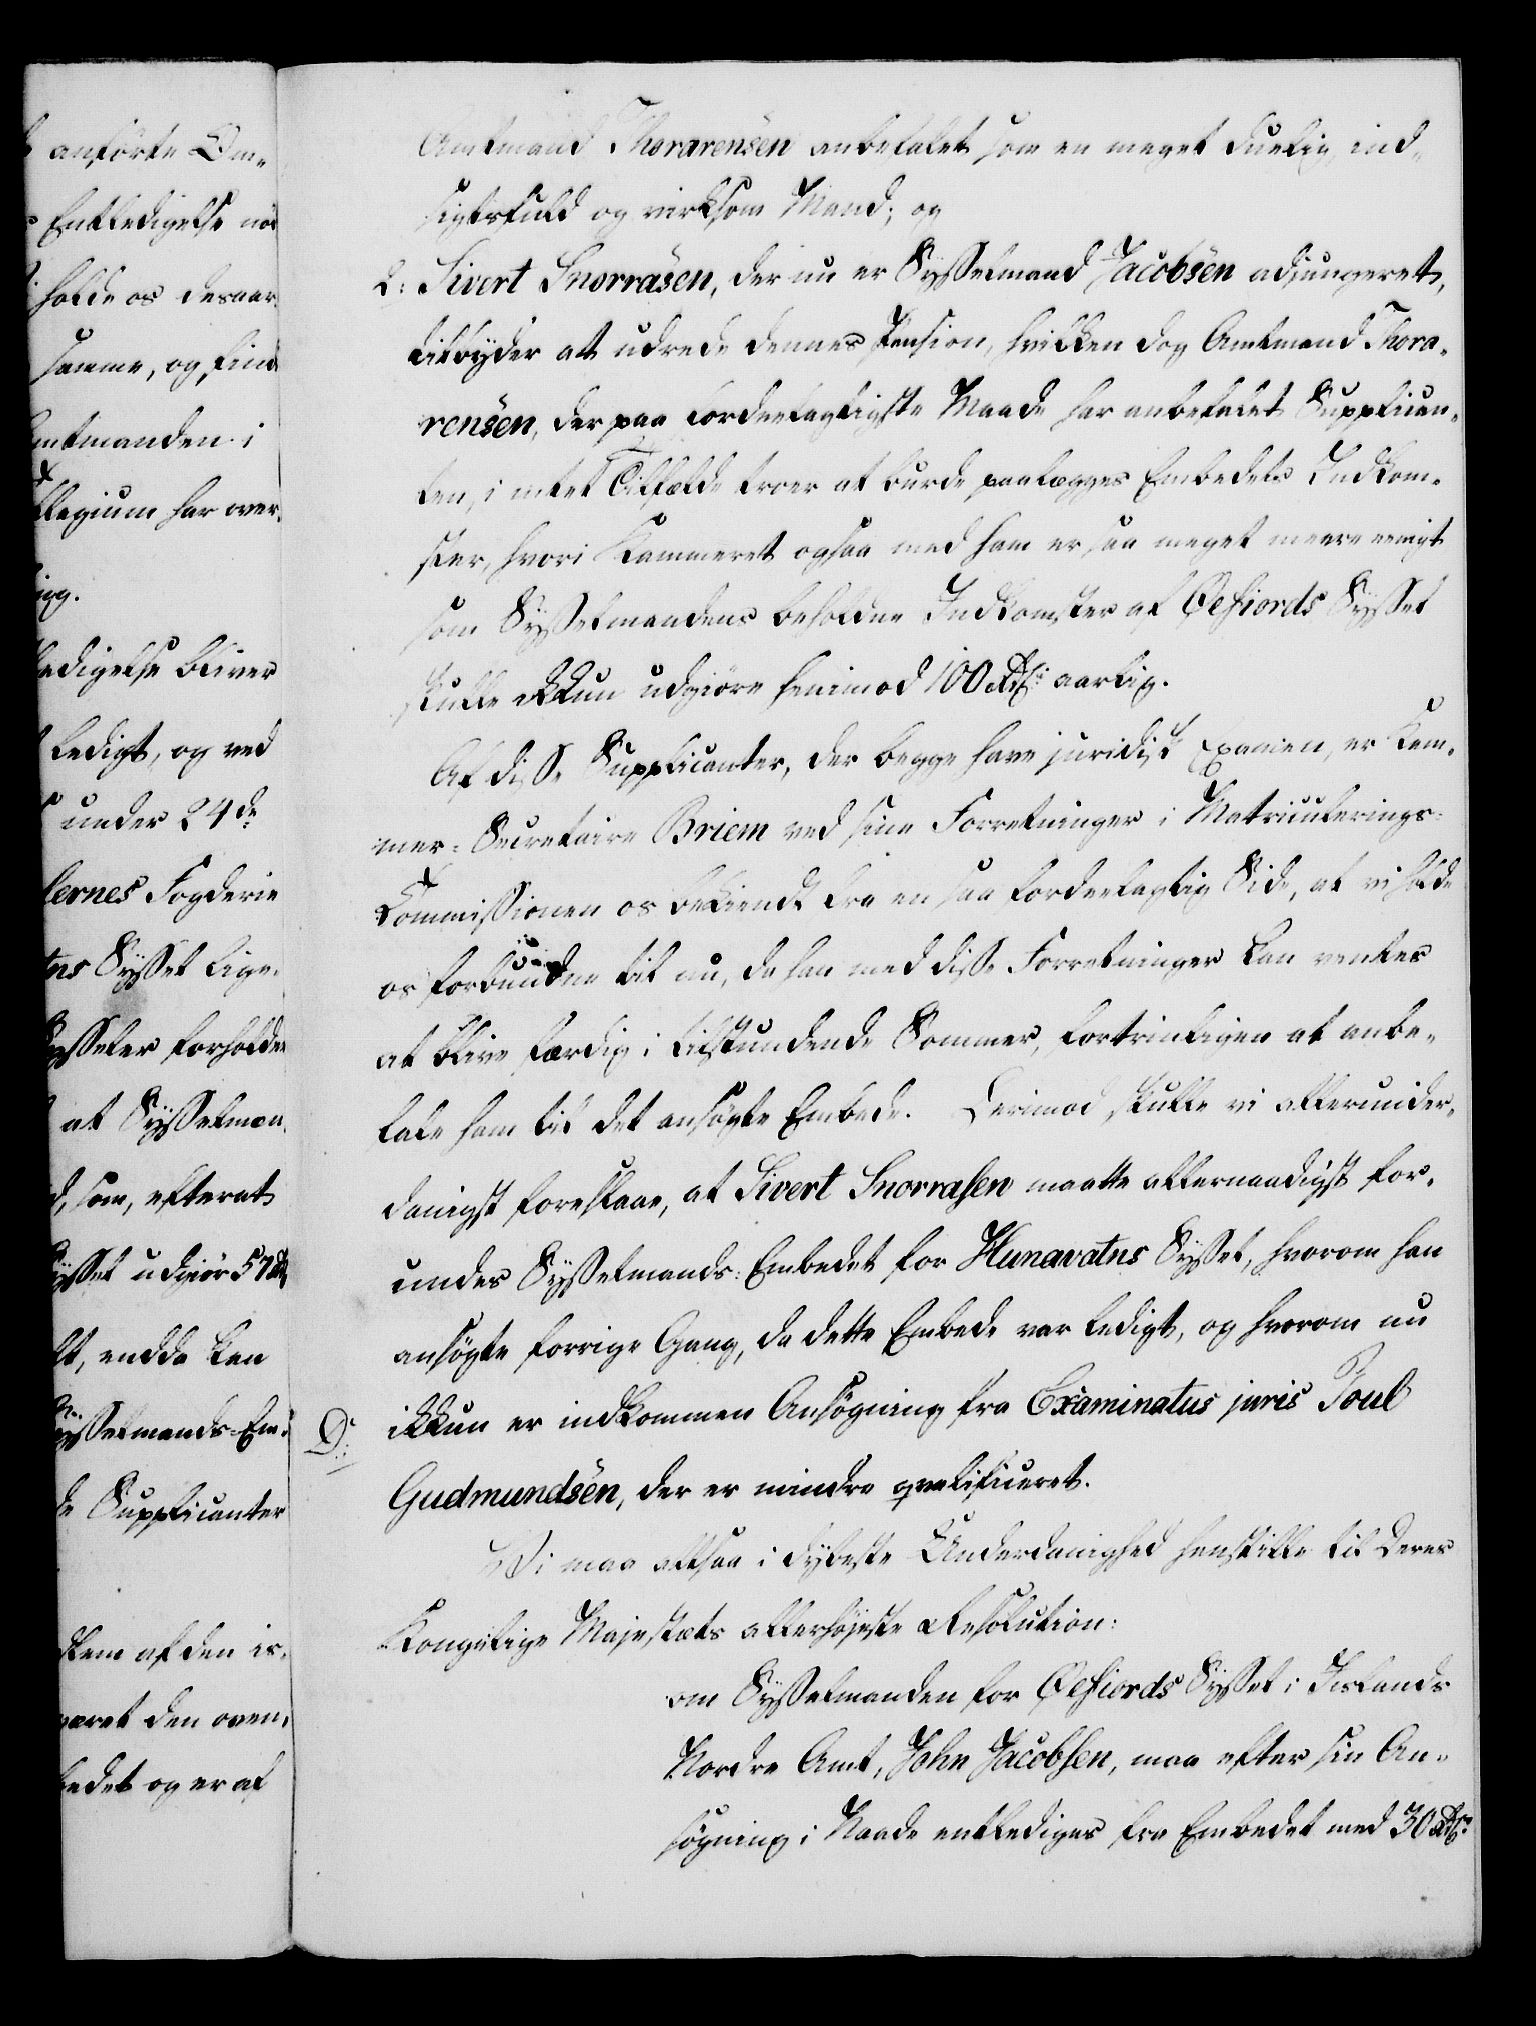 anförte Om-
Entledigelse nø
holde os desaar
samme, og find
mtmanden i
llegium har over-
ing.
ledigelse bliver
ledigt, og ved
under 24de
lernes Fogderie
tns Syssel lige-
Sysseler forholde
at Sysselmæn
d, som, efterat
Syssel udgiør 57
endda kan
Sysselmands-Em-
de Supplicanter
dkem af den is-
været den oven-
bedet og er af
Amtmand Thorarensen anbefalet som en meget duelig, ind-
sigtsfuld og virksom Mand; og
2: Sivert Snorrasen, der nu er Sysselmand Jacobsen adjungeret,
tilbyder at udrede dennes Pension, hvilken dog Amtmand Thora-
rensen, der paa fordeelagtigste Maade har anbefalet Supplican-
ten, i intet Tilfælde troer at burde paalægges Embedets Indkom-
ster, hvori Kammeret ogsaa med ham er saa meget meere eenigt
som Sysselmandens beholdne Indkomster af Öefiords Syssel
skulle ikkun udgiøre henimod 100 Rdlr. aarlig.
Af disse Supplicanter, der begge have juridisk Examen, er Kam-
mer-Secretaire Briem ved sine Forretninger i Matriculerings-
Commissionen os bekiendt fra en saa fordeelagtig Side, at vi holde
os forbundne til nu, da han med disse Forretninger kan ventes
at blive færdig i tilstundende Sommer, fortrinligen at anbe-
fale ham til det ansøgte Embede. Derimod skulle vi allerunder-
danigst foreslaae, at Sivert Snorrasen maatte allernaadigst for-
undes Sysselmands-Embedet for Hunavatns Syssel, hvorom han
ansøgte forrige Gang, da dette Embede var ledigt, og hvorom nu
D: ikkun er indkommen Ansøgning fra Examinatus juris Poul
Gudmundsen, der er mindre qvalificeret.
Vi maa altsaa i dybeste Underdanighed henstille til Deres
Kongelige Majestæts allerhøjeste Resolution:
om Sysselmanden for Öefiords Syssel i Islands
Nordre Amt, John Jacobsen, maa efter sin An-
søgning i Naade entlediges fra Embedet med 30 Rdlr.